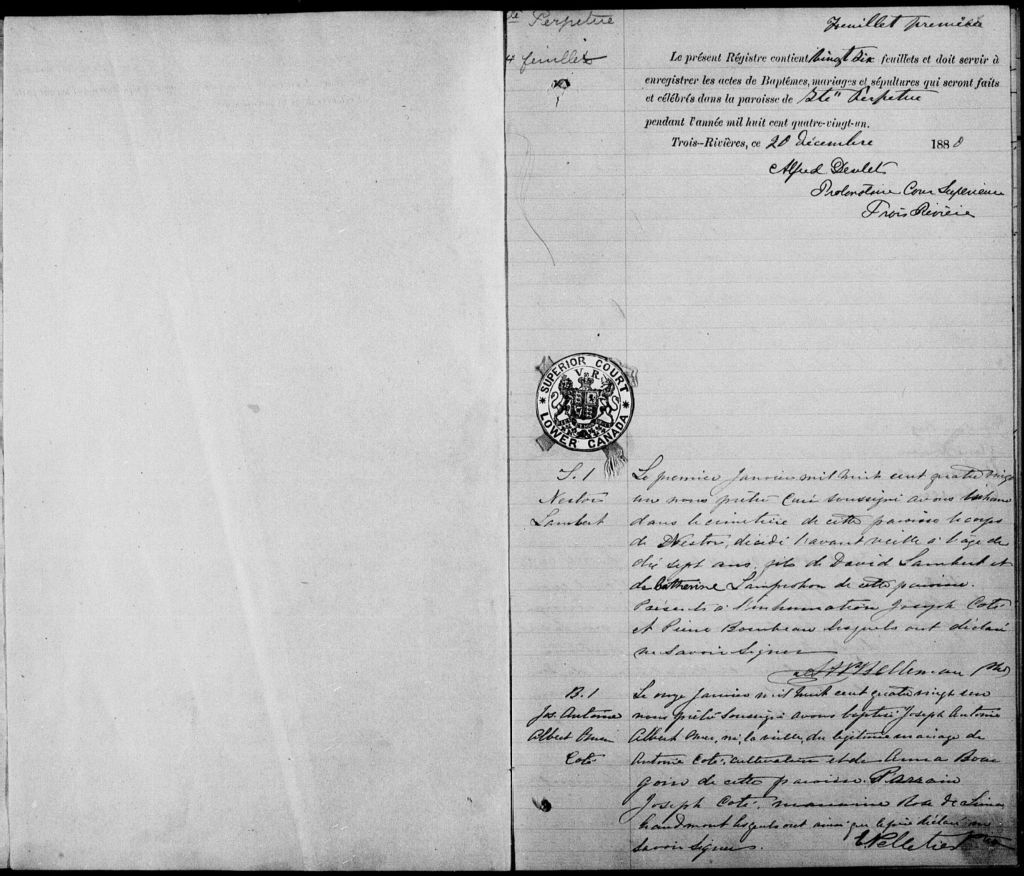 Ste Perpetue
4 feuillets
Feuillet première
Le présent Régistre contient vingt six feuillets et doit servir à
enregistrer les actes de Baptêmes, mariages et sépultures qui seront faits
et célébrés dans la paroisse de Ste Perpetue
pendant l'année mil huit cent quatre-vingt-un.
Trois-Rivières, ce 20 décembre 1880
Alfred Desilets
Protonotaire Cour Supérieure
Trois Rivière
SUPERIOR COURT
V R
LOWER CANADA
S. 1
Nestor
Lambert
Le premier Janvier mil huit cent quatre vingt
un nous prêtre Curé soussigné avons inhumé
dans le cimetière de cette paroisse le corps
de Nestor, décédé l'avant veille à l'âge de
dix sept ans, fils de David Lambert et
de Catherine Lampron de cette paroisse.
Présents à l'inhumation Joseph Coté
et Pierre lesquels ont déclaré
ne savoir signer
B. 1
Jos. Antoine
Albert Omer
Coté
Le onze Janvier mil huit cent quatre vingt un
nous prêtre soussigné avons baptisé Joseph Antoine
Albert Omer, né la veille, du légitime mariage de
Antoine Coté, cultivateur et de Anna Bour
goin de cette paroisse. Parrain
Joseph Coté, marraine Rose de Lima
lesquels ont ainsi que le père déclaré ne
savoir signer.
Pelletier Ptre